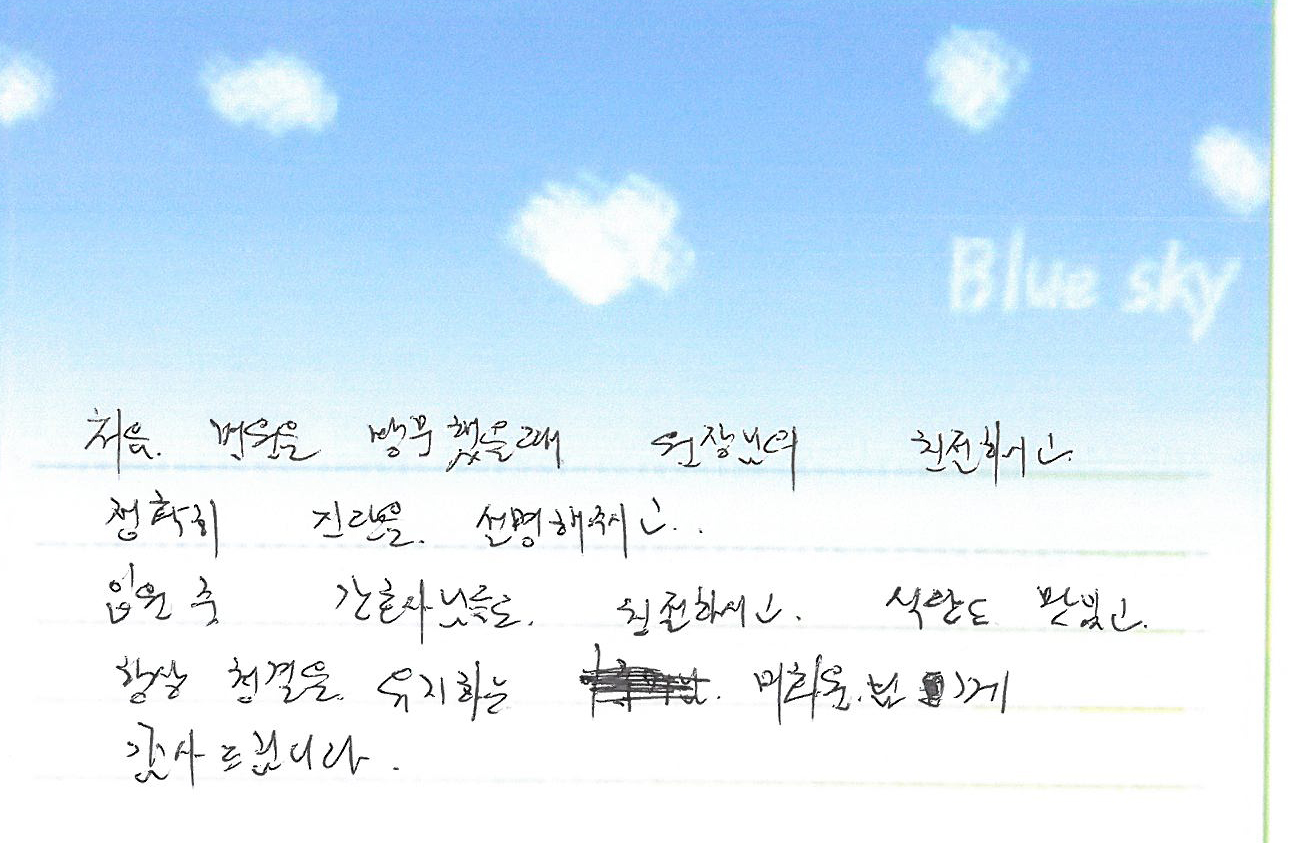 Blue sky
처음. 병원을 방문했을때 원장님의 친절하시고.
정확히 진단을. 설명해주시고..
입원 중 간호사님들도. 친절하시고. 식단도 맛있고.
항상 청결을. 유지하는 미화원.님 에게
감사드립니다.